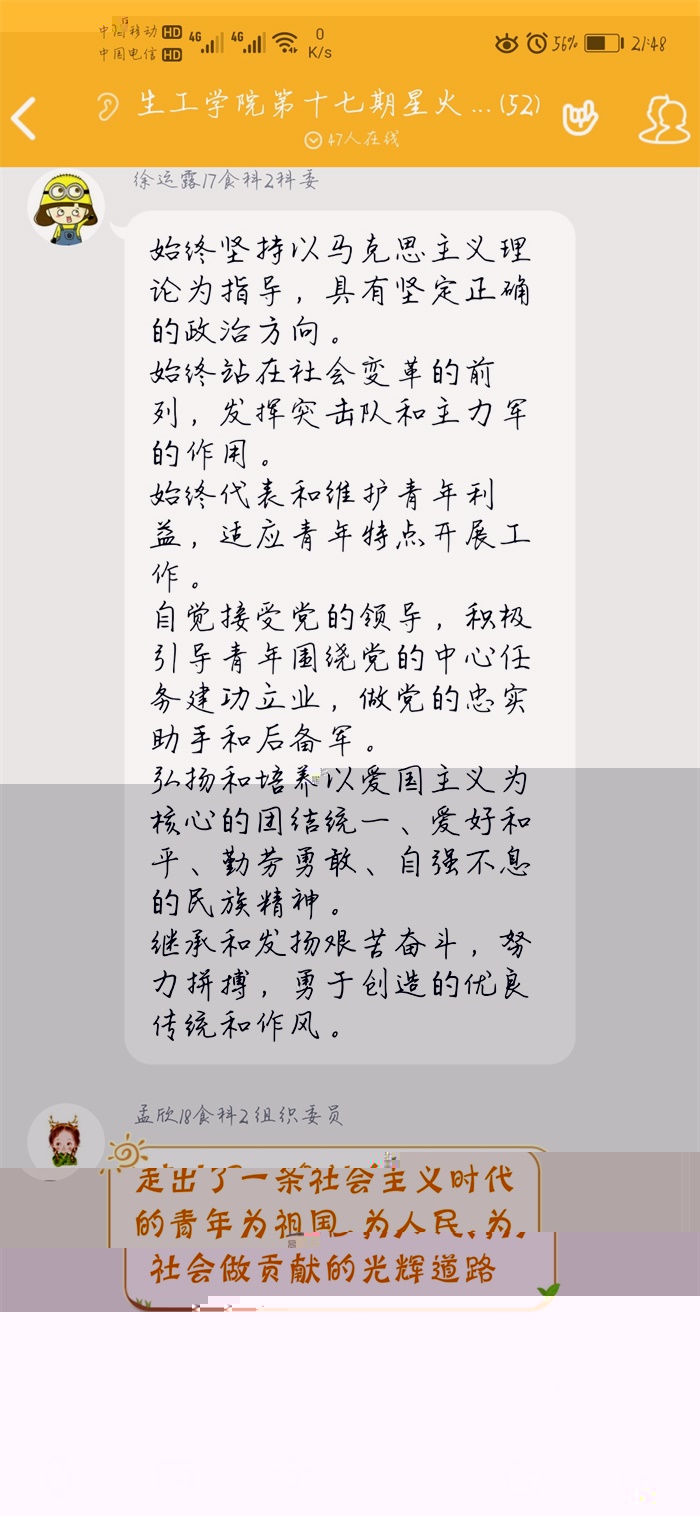 中国移动 HD 4G 4G 0 K/s 56% 21:48
中国电信 HD
生工学院第十七期星火...(52)
47人在线
徐运露17食科2科委
始终坚持以马克思主义理
论为指导，具有坚定正确
的政治方向。
始终站在社会变革的前
列，发挥突击队和主力军
的作用。
始终代表和维护青年利
益，适应青年特点开展工
作。
自觉接受党的领导，积极
引导青年围绕党的中心任
务建功立业，做党的忠实
助手和后备军。
弘扬和培养以爱国主义为
核心的团结统一、爱好和
平、勤劳勇敢、自强不息
的民族精神。
继承和发扬艰苦奋斗，努
力拼搏，勇于创造的优良
传统和作风。
孟欣18食科2组织委员
走出了一条社会主义时代
的青年为祖国、为人民、为
社会做贡献的光辉道路